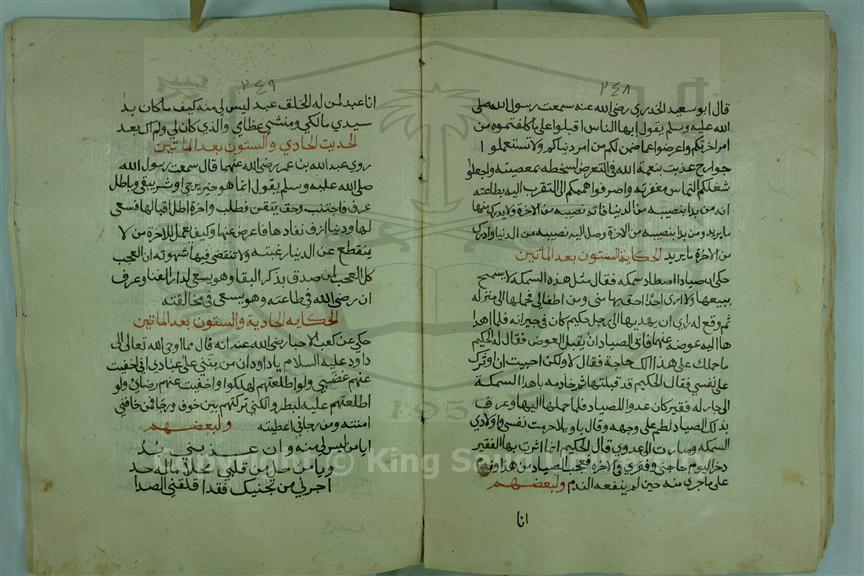 ٢٤٨
قال ابو سعيد الخدري رضي الله عنه سمعت رسول الله صلى
الله عليه وسلم يقول ايها الناس اقبلوا على ما كلفتموه من
امر اخرتكم واعرضوا عما ضمن لكم من امر دنياكم ولا تستعملوا ا
جوارح غذيت بنعمة الله في التعرض لسخطه بمعصيته واجعلوا
شغلكم التماس مغفرته واصرفوا هممكم الى التقرب اليه بطاعته
انه من بدا بنصيبه من الدنيا فاته نصيبه من الاخرة ولا يدرك منها
ما يريد ومن بدا بنصيبه من الاخرة وصل اليه نصيبه من الدنيا وادرك
من الاخرة ما يريد الحكاية الستون بعد الماتين
حكي ان صيادا اصطاد سمكة فقال مثل هذه السمكة لا يسمح
ببيعها ولا ارى احدا احق بها مني ومن اطفالي فحملها الى منزله
ثم وقع له راي ان يهديها الى رجل حكيم كان في جيرانه فلما اهدا
ها اليه عوضه عنها فابى الصياد ان يقبل العوض فقال له الحكيم
ما حملك على هذا الك حاجة فقال لا ولكن احببت ان اوثرك
على نفسي فقال الحكيم قد قبلتها ثم امر خادمه باهدا السمكة
الى جار له فقير كان عدوا للصياد فلما حملها اليها وعرف
بذلك الصياد لطم على وجهه وقال يا ويلاه حرمت نفسي واولادي
السمكة وصارت الى عدوي قال الحكيم انما اثرت بها الفقير
ذخرا ليوم حاجتي وفقري في الاخرة فتعجب الصياد من هذا وندم
على ما جرى منه حين لم ينفعه الندم ولبعضهم
انا
٢٤٩
انا عبد لمن له الخلق عبد ليس لي منه كيف ما كان بد
سيدي مالكي ومنشي عظامي والذي كان لي ولم اك بعد
الحديث الحادي والستون بعد الماتين
روي عبد الله بن عمر رضي الله عنهما قال سمعت رسول الله
صلى الله عليه وسلم يقول انما هو خير يرجى او شر يتقى وباطل
عرف فاجتنب وحق يتقن فطلب واخرة اظل اقبالها فسعى
لها ودنيا ازف نفادها فاعرض عنها وكيف يعمل للاخرة من لا
ينقطع عن الدنيا رغبته ولا تنقضي فيها شهوته ان العجب
كل العجب لمن صدق بدار البقا وهو يسعى لدار الفنا وعرف
ان رضى الله في طاعته وهو يسعى في مخالفته
الحكاية الحادية والستون بعد الماتين
حكي عن كعب الاحبار رضي الله عنه انه قال مما اوحى الله تعالى الى
داود عليه السلام يا داود ان من منتي على عبادي اني اخفيت
عنهم غضبي ولو اطلعتهم لهلكوا واخفيت عنهم رضاي ولو
اطلعتهم عليه لبطروا لكني تركتهم بين خوف ورجا فمن خافني
امنته ومن رجاني اعطيته ولبعضهم
ايا من ليس لي منه وان عذبني بد
ويا من نال من قلبي منالا ما له حد
اجرني من تجنيك فقد اقلقني الصدا